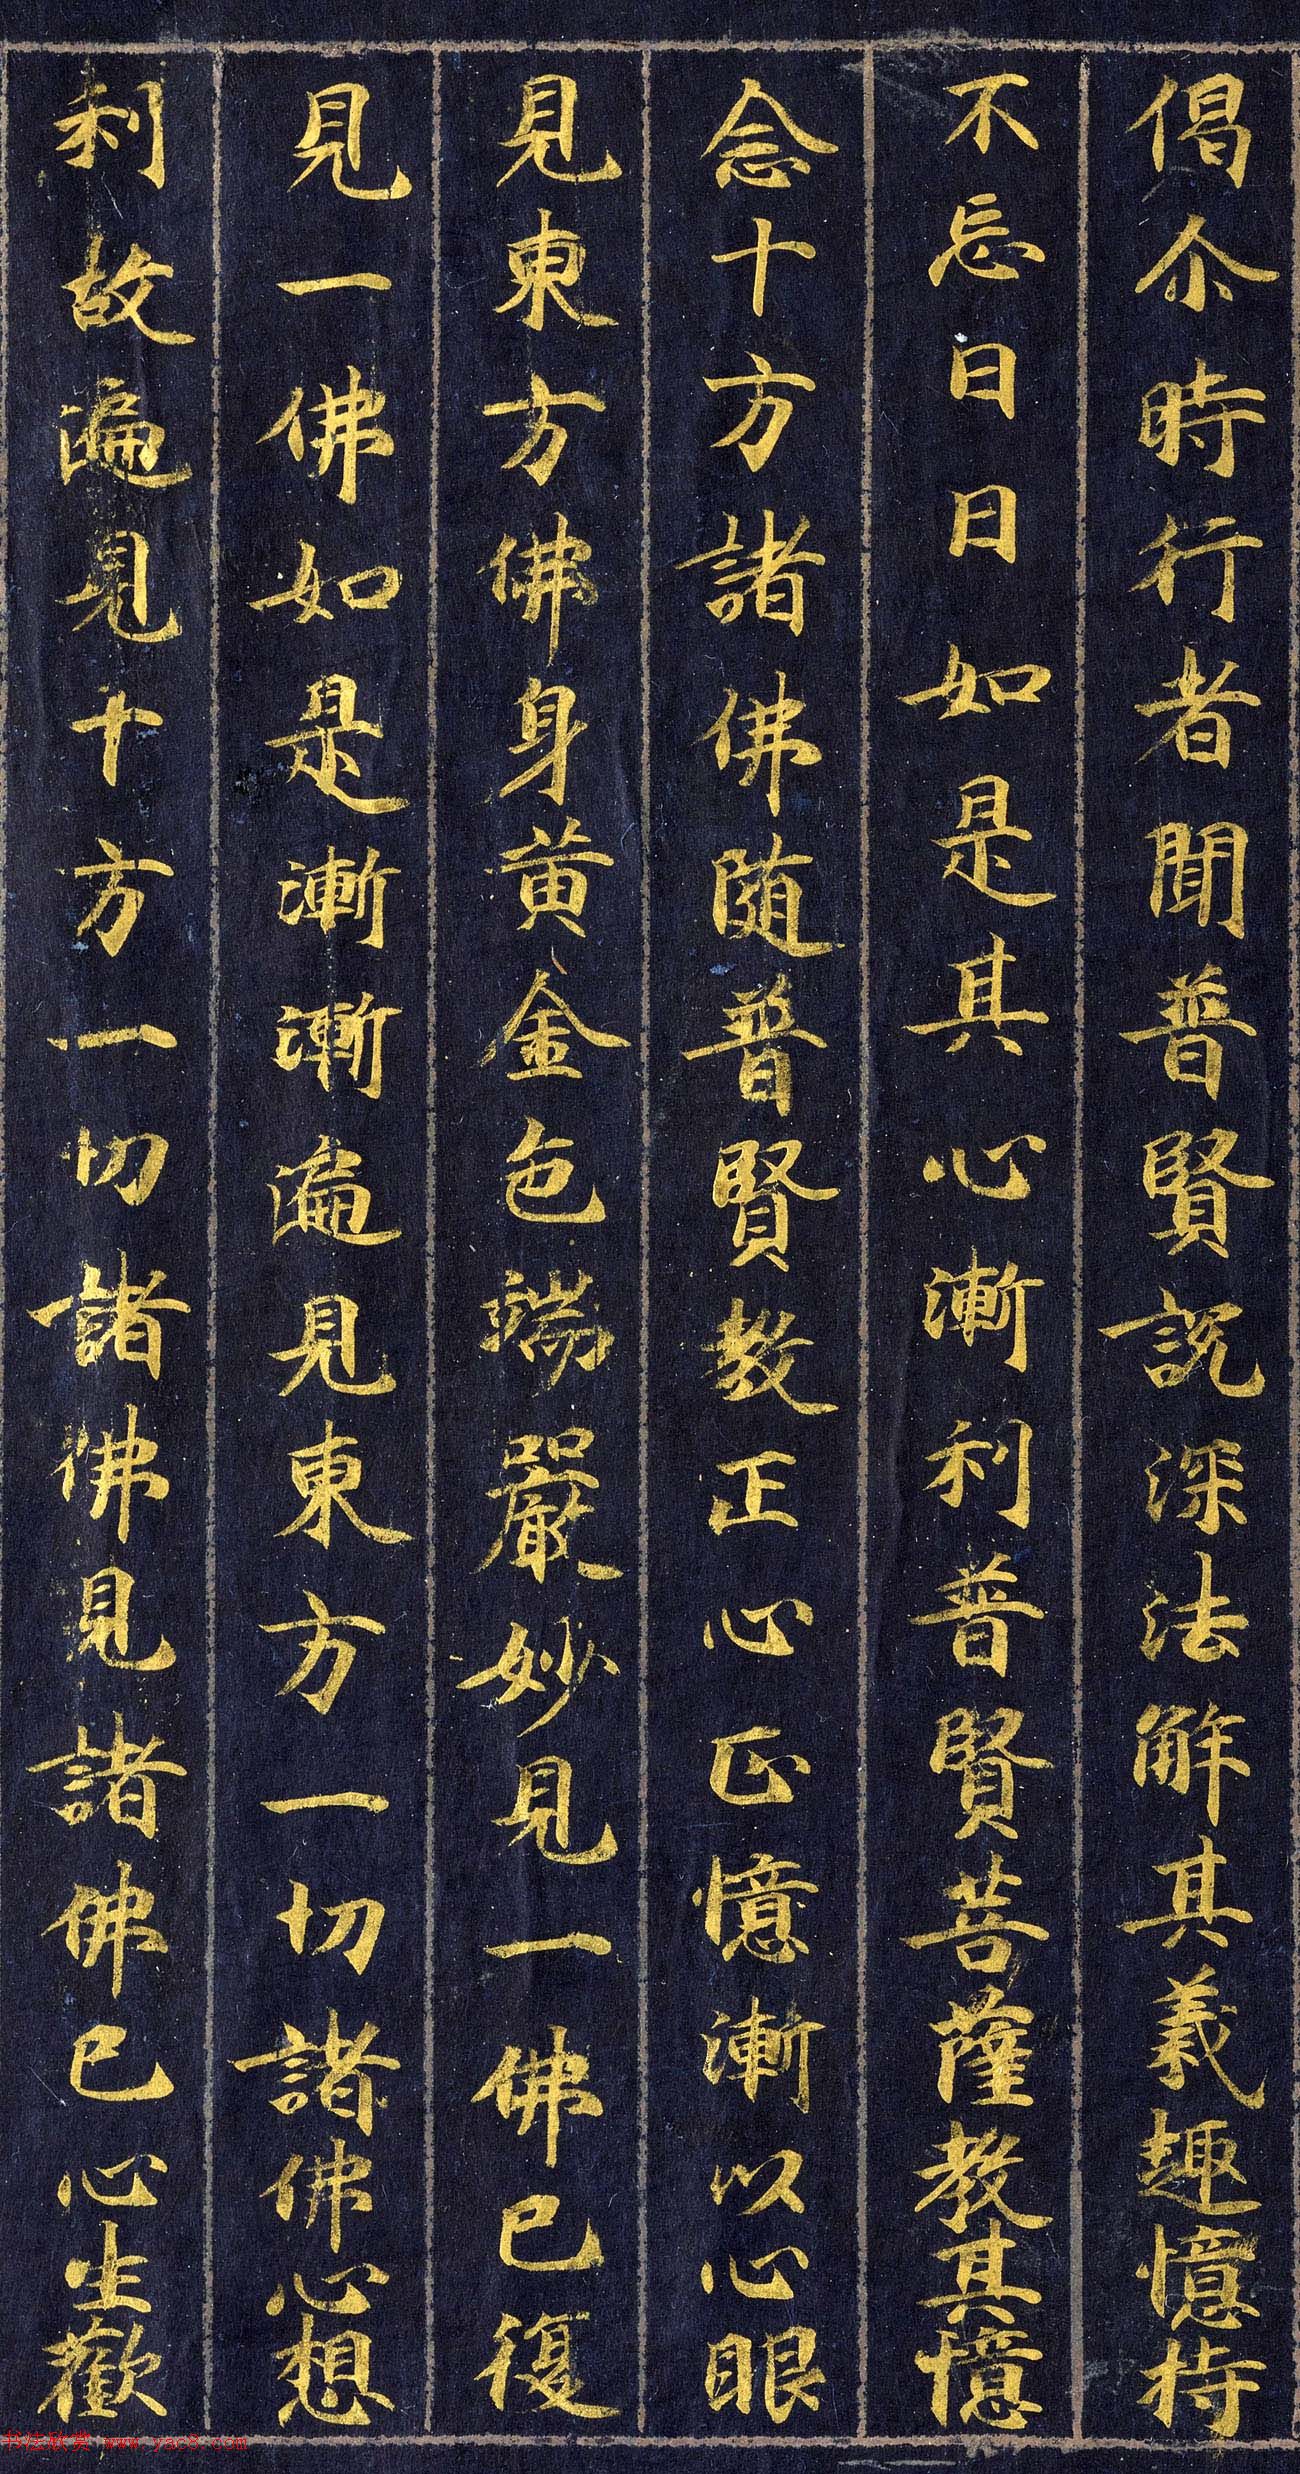 偈尒時行者聞普賢說深法解其義趣憶持
不忘日日如是其心漸利普賢菩薩教其憶
念十方諸佛随普賢教正心正憶漸以心眼
見東方佛身黃金色端嚴妙見一佛已復
見一佛如是漸漸遍見東方一切諸佛心想
利故遍見十方一切諸佛見諸佛已心生歡
书法欣赏 www.yac8.com